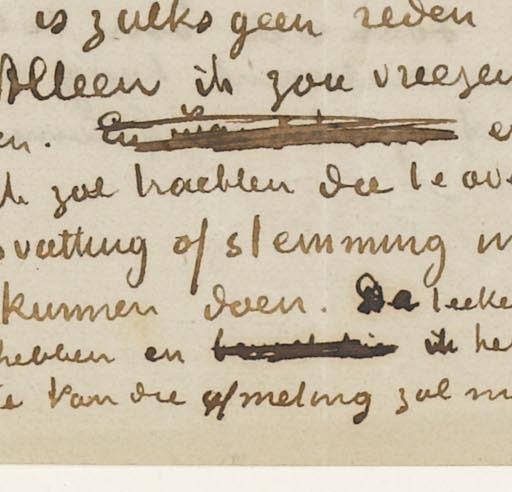 is zulks geen reden
Alleen ik zou vreezen
en.
ik zal trachten die te ove
svatting of stemming
kunnen doen. De teeke
hebben en ik he
Van die afmeting zal